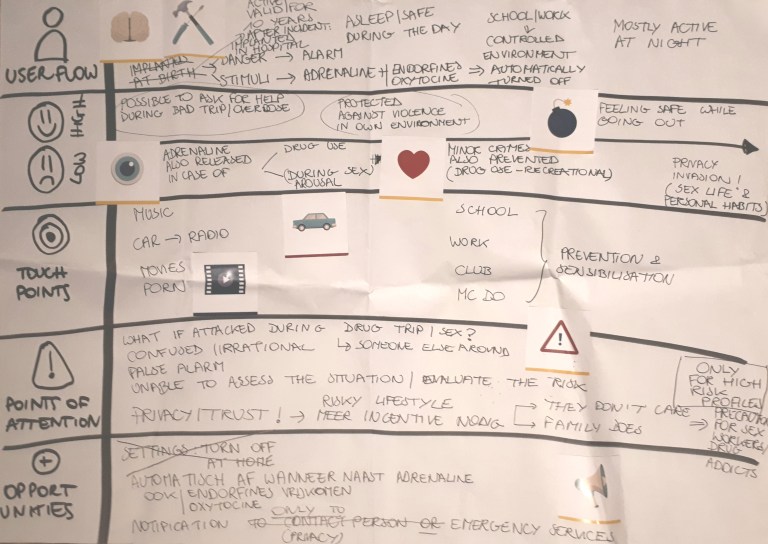 USER FLOW
ACTIVE
VALID/FOR
10 YEARS
AFTER INCIDENT.
IMPLANTED
IN HOSPITAL
IMPLANTED
AT BIRTH
DANGER → ALARM
STIMULI → ADRENALINE + / ENDORFINES
OXYTOCINE
ASLEEP/SAFE
DURING THE DAY
SCHOOL/WORK
↓
CONTROLLED
ENVIRONMENT
⇒ AUTOMATICALLY
TURNED OFF
MOSTLY ACTIVE
AT NIGHT
HIGH
LOW
POSSIBLE TO ASK FOR HELP
DURING BAD TRIP/OVERDOSE
PROTECTED
AGAINST VIOLENCE
IN OWN ENVIRONMENT
FEELING SAFE WHILE
GOING OUT
ADRENALINE
ALSO RELEASED
IN CASE OF
DRUG USE
(DURING SEX)
AROUSAL
MINOR CRIMES
ALSO PREVENTED
(DRUG USE - RECREATIONAL)
PRIVACY
INVASION!
(SEX LIFE &
PERSONAL HABITS)
TOUCH
POINTS
MUSIC
CAR → RADIO
MOVIES
PORN
SCHOOL
WORK
CLUB
MC DO
PREVENTION &
SENSIBILISATION
POINTS OF
ATTENTION
WHAT IF ATTACKED DURING DRUG TRIP/SEX?
CONFUSED / IRRATIONAL ↳ SOMEONE ELSE AROUND
FALSE ALARM
UNABLE TO ASSESS THE SITUATION / EVALUATE THE RISK
PRIVACY/TRUST! → RISKY LIFESTYLE
MEER INCENTIVE NODIG
→ THEY DON'T CARE
→ FAMILY DOES
ONLY
FOR HIGH
RISK
PROFILES
⇒ PRECAUTION
FOR SEX
WORKERS/
DRUG
ADDICTS
OPPORT
UNITIES
SETTINGS - TURN OFF
AT HOME
AUTOMATISCH AF WANNEER NAAST ADRENALINE
OOK / ENDORFINES VRIJKOMEN
OXYTOCINE
ONLY TO
NOTIFICATION TO CONTACTPERSON OR EMERGENCY SERVICES
(PRIVACY)